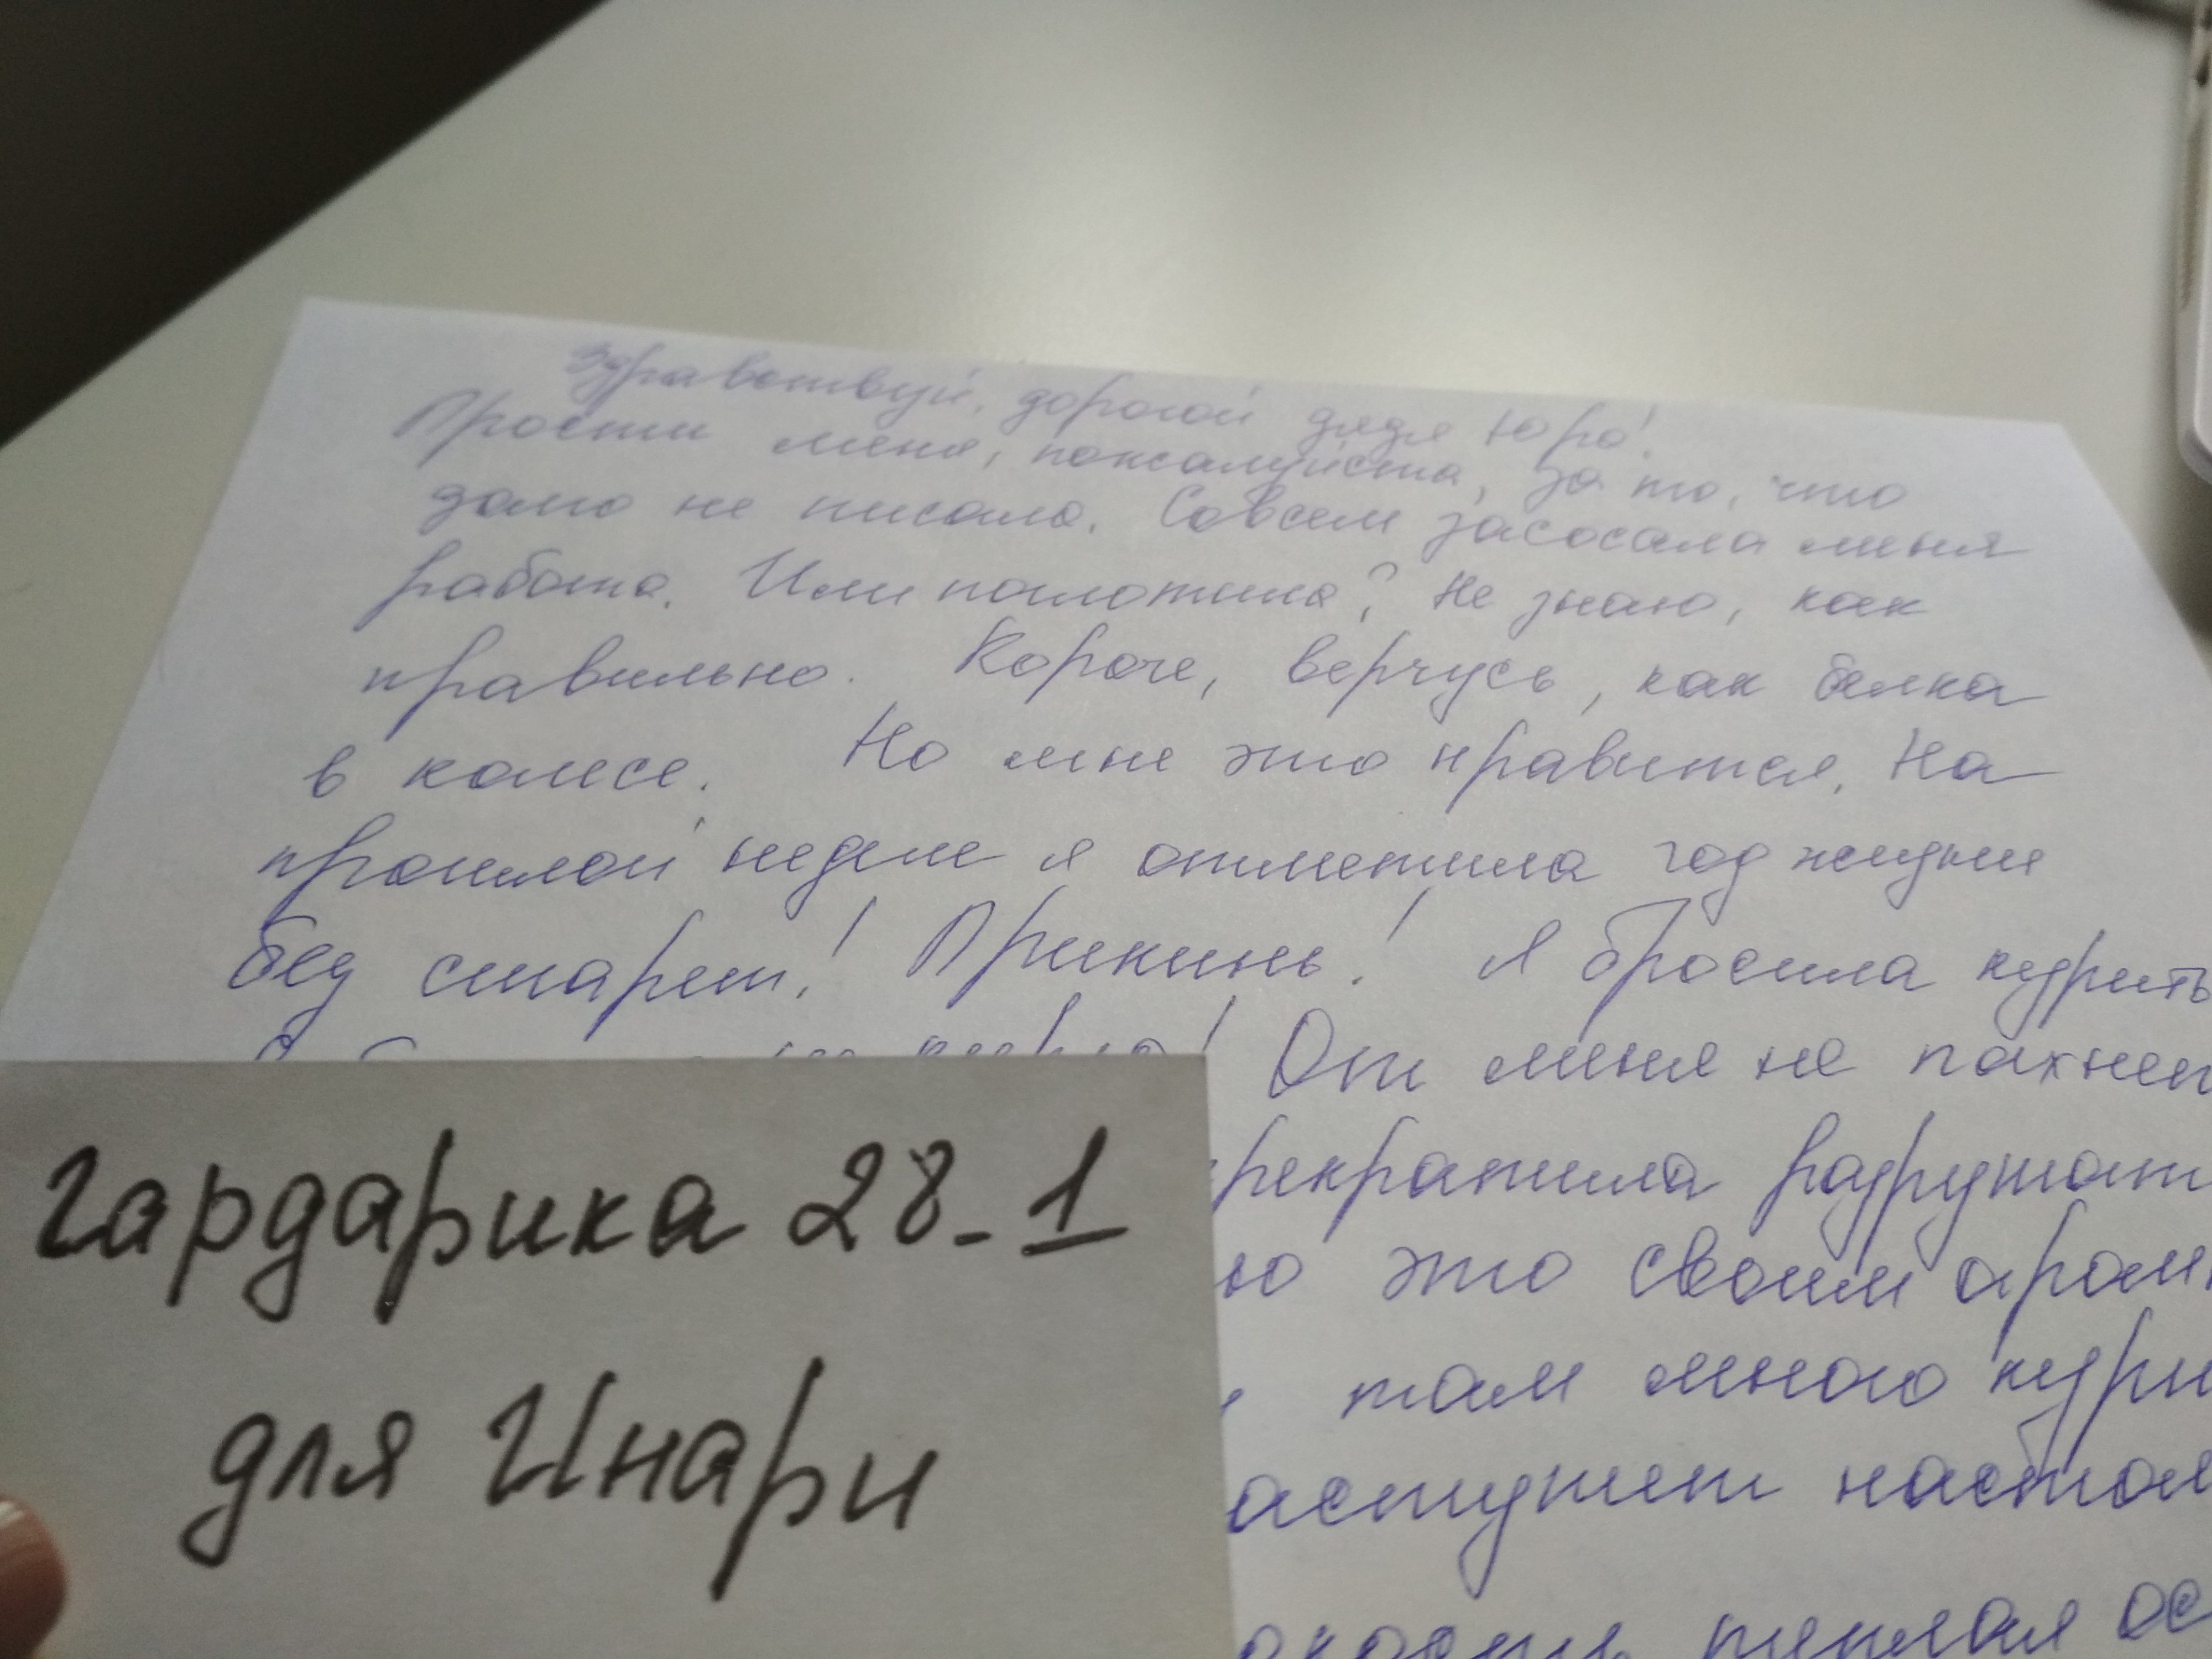 Здравствуй, дорогой дядя Юра!
Прости меня, пожалуйста, за то, что
долго не писала. Совсем засосала меня
работа. Или поглотила? Не знаю, как
правильно. Короче, верчусь, как белка
в колесе. Но мне это нравится. На
прошлой неделе я отметила год жизни
без сигарет! Прикинь! Я бросила курить
От меня не пахнет
рекратила разрушат
ью это своим аром
там много кури
аступит настоя
тёплая ос
Гардарика 28-1
для Инари